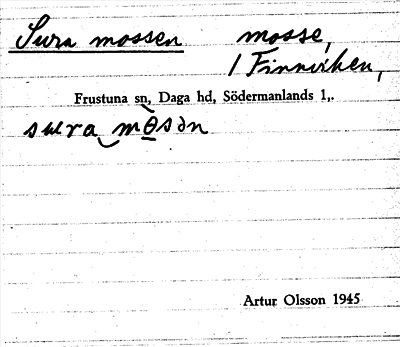 Sura mossen mosse,
1 Finnviken,
Frustuna sn, Daga hd, Södermanlands l,.
sura mɵsən
Artur Olsson 1945